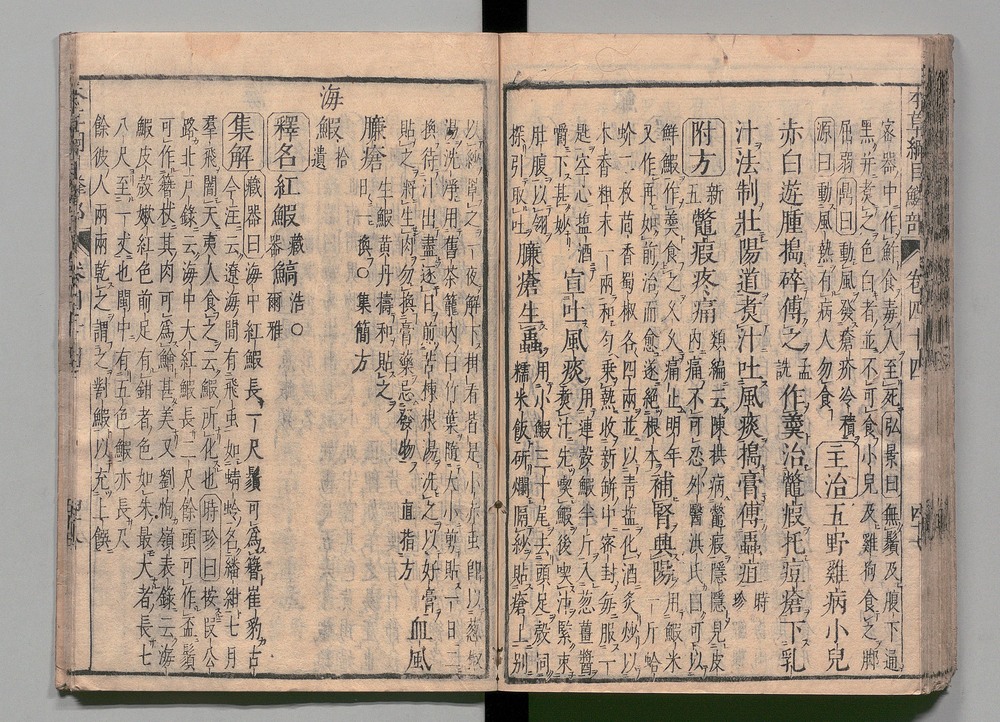 家器中作鮓食毒人至死弘景曰無鬚及腹下通
黑并煮之色白者並不可食小兒及雞狗食之脚
屈弱
源曰動風熱有病人勿食
主治五野雞病小兒
赤白遊腫搗碎傅之孟詵作羹治鼈瘕托痘瘡下乳
汁法制壯陽道煑汁吐風痰搗膏傅蟲疽時珍
附方新五鼈瘕疼痛類編云陳拱病鼈瘕隱隱見皮
内痛不可忍外醫洪氏曰可以
鮮鰕作羹食之久久痛止明年
又作再如前治而愈遂絕根本補腎興陽用鰕米一斤蛤
蚧二枚茴香蜀椒各四兩並以青塩化酒炙炒以
木香粗末一兩和勻乗熱收新缾中密封每服一
匙空心塩酒
嚼下甚妙宣吐風痰用連殼鰕半斤入葱薑醬
煮汁先喫鰕後喫汁緊束
肚腹以翎
探引取吐臁瘡生蟲用小鰕三十尾去頭足殼同
糯米飯研爛隔紗貼瘡上别
以紗罩之一夜解下掛看皆是小赤虫即以葱椒
湯洗淨用舊茶籠内白竹葉隨大小剪貼一日二
換待汁出盡逐日煎苦楝根湯洗之以好膏
貼之將生肉勿換膏藥忌發物直指方血風
臁瘡生鰕黃丹擣和貼之
日一換○集簡方
海鰕拾遺
釋名紅鰕藏器鰝浩○爾雅
集解藏器曰海中紅鰕長一尺鬚可爲簪崔豹古
今注云遼海間有飛虫如蜻蛉名紺七月
羣飛闇天夷人食之云鰕所化也時珍曰按段公
路北戸錄云海中大紅鰕長二尺餘頭可作盃鬚
可作簪杖其肉可爲鱠甚美又劉恂嶺表錄云海
鰕皮殼嫩紅色前足有鉗者色如朱最大者長七
八尺至一丈也閩中有五色鰕亦長尺
餘彼人兩兩乾之謂之對鰕以充上饌
卷四十四